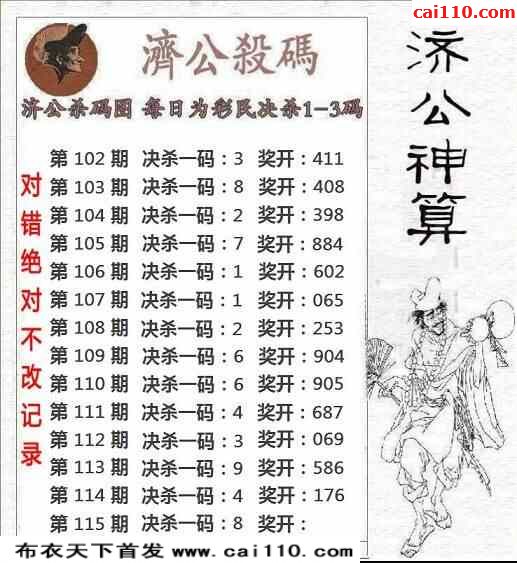 cai110.com
濟公殺碼
济公杀码图 每日为彩民决杀1-3码
济公神算
对错绝对不改记录
第 102 期 决杀一码:3 奖开:411
第 103 期 决杀一码:8 奖开:408
第 104 期 决杀一码:2 奖开:398
第 105 期 决杀一码:7 奖开:884
第 106 期 决杀一码:1 奖开:602
第 107 期 决杀一码:1 奖开:065
第 108 期 决杀一码:2 奖开:253
第 109 期 决杀一码:6 奖开:904
第 110 期 决杀一码:6 奖开:905
第 111 期 决杀一码:4 奖开:687
第 112 期 决杀一码:3 奖开:069
第 113 期 决杀一码:9 奖开:586
第 114 期 决杀一码:4 奖开:176
第 115 期 决杀一码:8 奖开:
布衣天下首发 www.cai110.com